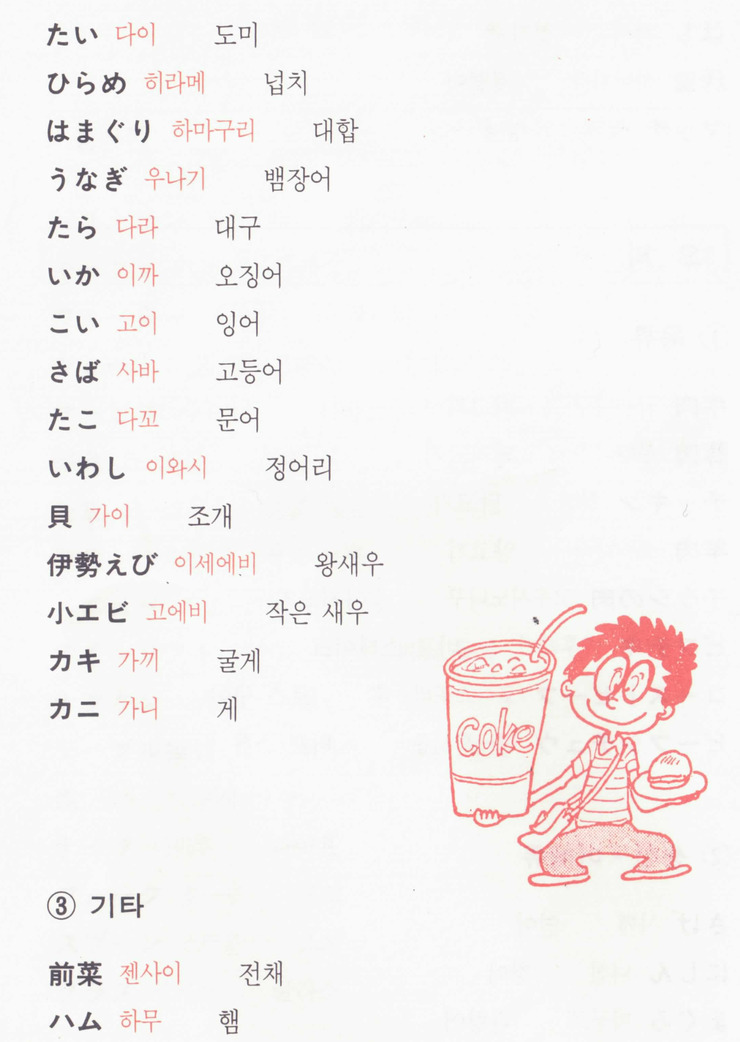 たい 다이 도미
ひらめ 히라메 넙치
はまぐり 하마구리 대합
うなぎ 우나기 뱀장어
たら 다라 대구
いか 이까 오징어
こい 고이 잉어
さば 사바 고등어
たこ 다꼬 문어
いわし 이와시 정어리
貝 가이 조개
伊勢えび 이세에비 왕새우
小エビ 고에비 작은 새우
カキ 가끼 굴게
カニ 가니 게
coke
③ 기타
前菜 젠사이 전채
ハム 하무 햄